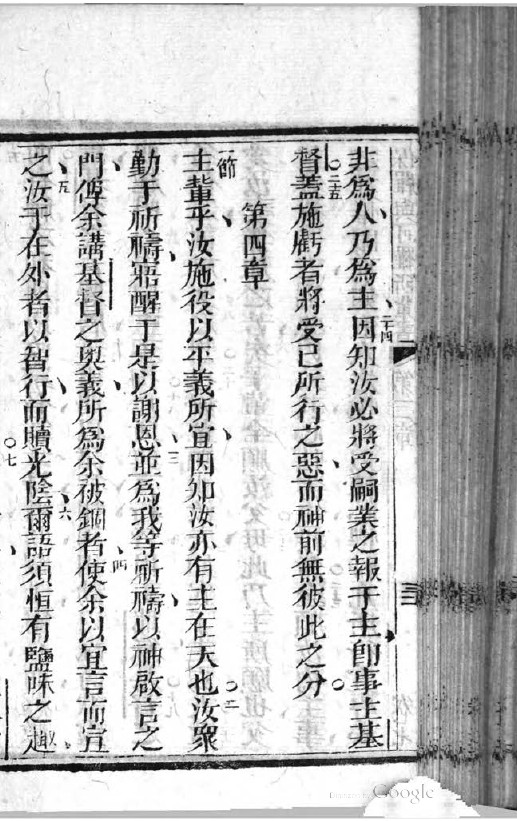 非爲人乃爲主因知汝必將受嗣業之報于主卽事主基
督蓋施虧者將受已所行之惡而神前無彼此之分
第四章
主輩乎汝施役以平義所宜因知汝亦有主在天也汝眾
勤于祈禱寤醒于是以謝恩並爲我等祈禱以神啟言之
門俾余講基督之奧義所爲余被錮者使余以宜言而宣
之汝于在外者以智行而贖光陰爾語須恒有鹽味之趣
Google